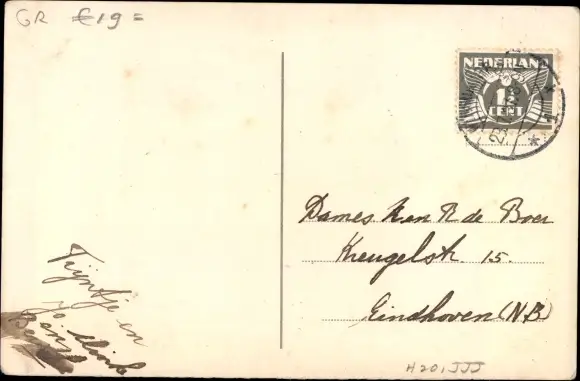 GR €19=
NEDERLAND
1½
CENT
Dames H en R de Boer
Kreugelstr. 15.
Eindhoven (N.B)
Tijntje en
H201JJJ